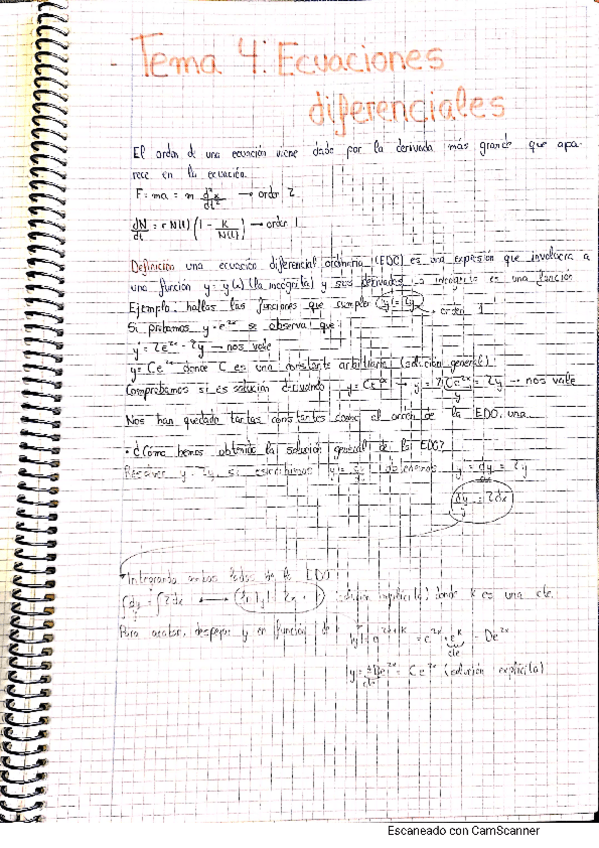 - Tema 4: Ecuaciones
diferenciales
El orden de una ecuación viene dado por la derivada más grande que apa-
rece en la ecuación.
F = ma = m d²x/dt² → orden 2
dN/dt = r N(t) (1 - K/N(t)) → orden 1
Definición una ecuación diferencial ordinaria (EDO) es una expresión que involucra a
una función y = y(x) (la incógnita) y sus derivadas → incógnita es una función
Ejemplo: hallas las funciones que cumplen y' = 2y → orden 1
Si probamos y = e^2x se observa que
y' = 2e^2x = 2y → nos vale
y = Ce^2x donde C es una constante arbitraria (solución general).
Comprobamos si es solución derivando y = Ce^2x → y' = 2Ce^2x = 2y → nos vale
y
Nos han quedado tantas constantes como el orden de la EDO, una
• ¿Cómo hemos obtenido la solución general de la EDO?
Resolver y' = 2y si escribimos y' = dy/dx obtenemos y' = dy/dx = 2y
dy/y = 2dx
Integrando ambos lados de la EDO
∫dy/y = ∫2dx (implícita) donde K es una cte.
Para acabar, despejar y en función de
|y| = e^2x+K = e^2x · e^K = De^2x
cte
y = ±De^2x = Ce^2x (solución explícita)
Escaneado con CamScanner